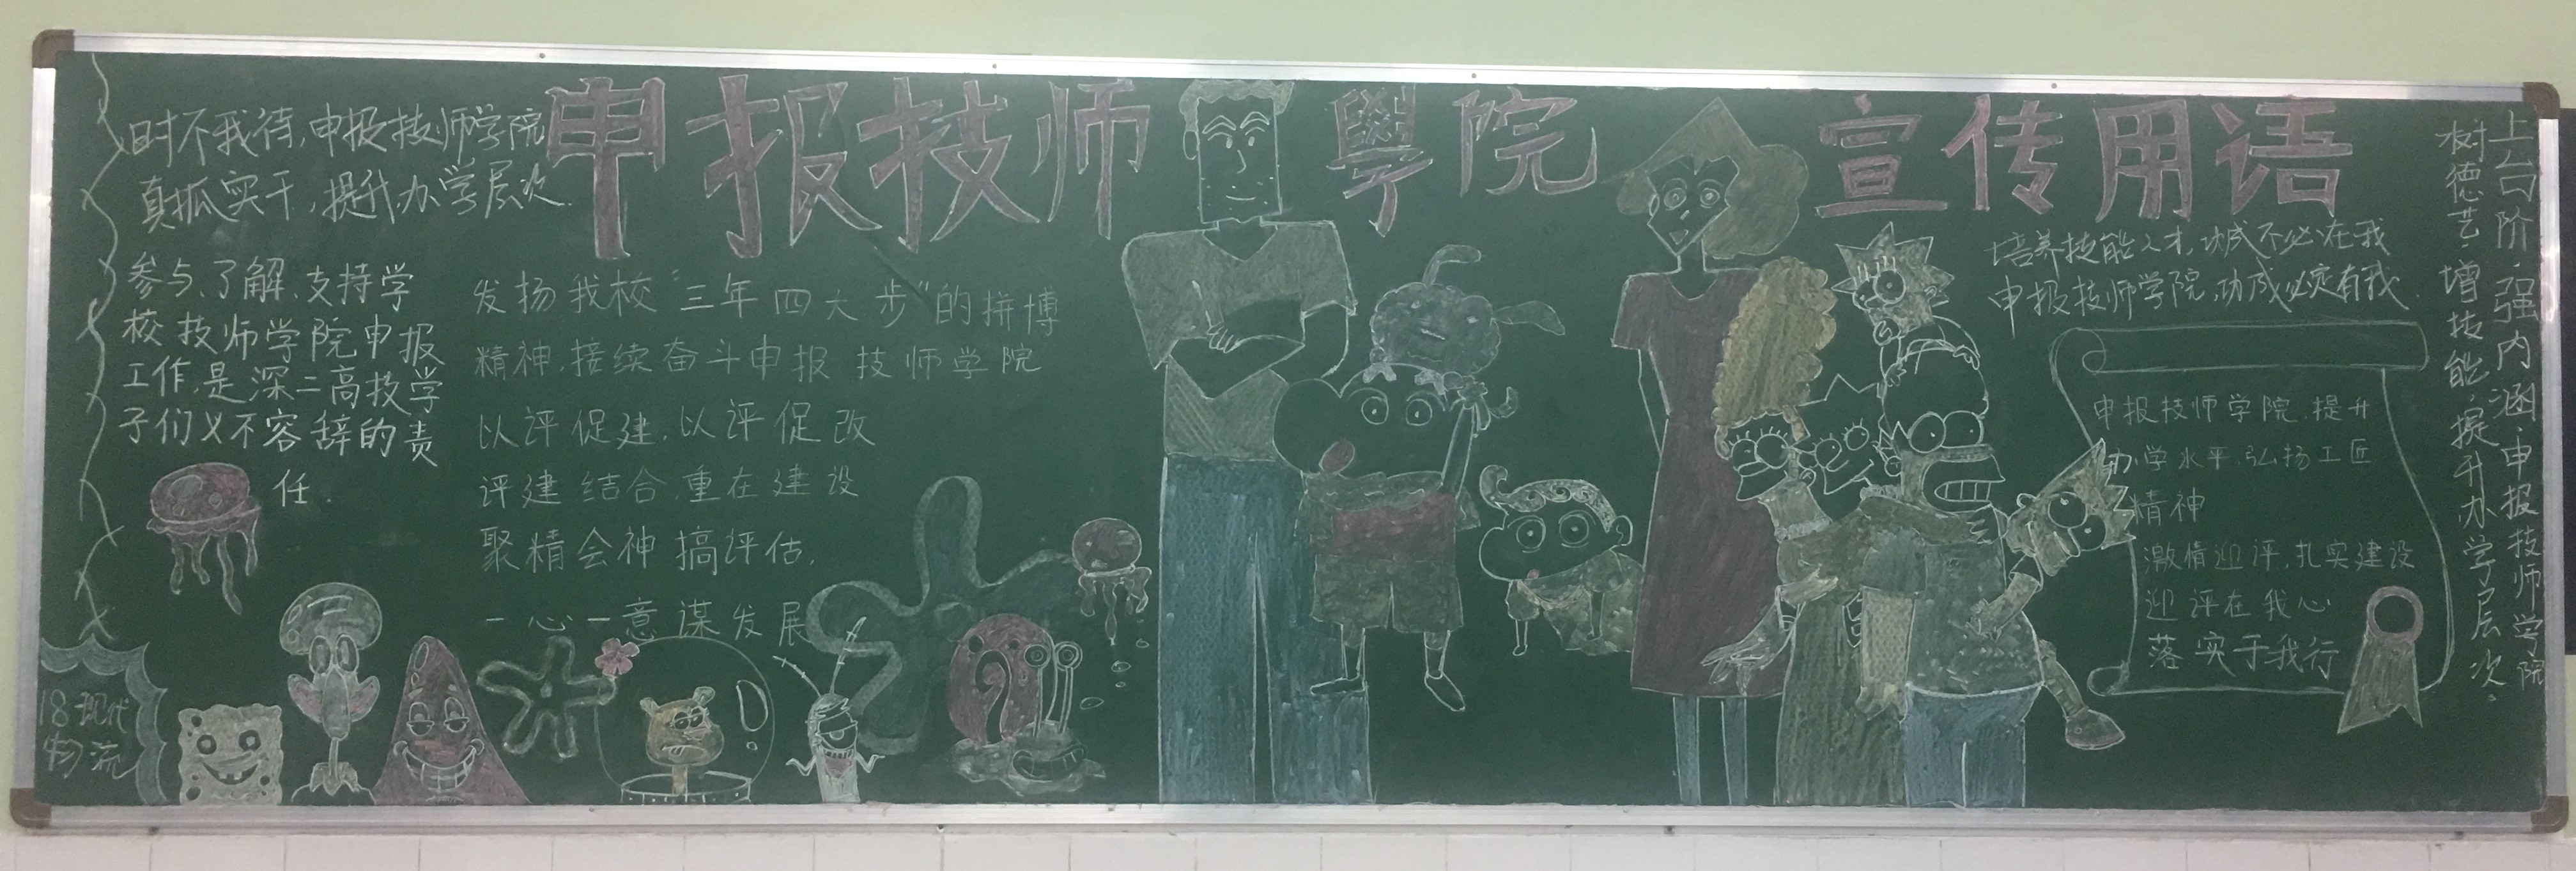 申报技师學院宣传用语
时不我待,申报技师学院
真抓实干,提升办学层次.
参与、了解、支持学
校技师学院申报
工作,是深二高技学
子们义不容辞的责
任.
发扬我校“三年四大步”的拼博
精神,接续奋斗申报技师学院
以评促建,以评促改
评建结合,重在建设
聚精会神搞评估,
一心一意谋发展
18现代
物流
培养技能人才,功成不必在我
申报技师学院,功成必定有我.
申报技师学院,提升
办学水平,弘扬工匠
精神
激情迎评,扎实建设
迎评在我心
落实于我行
上台阶,强内涵,申报技师学院
树德艺,增技能,提升办学层次。